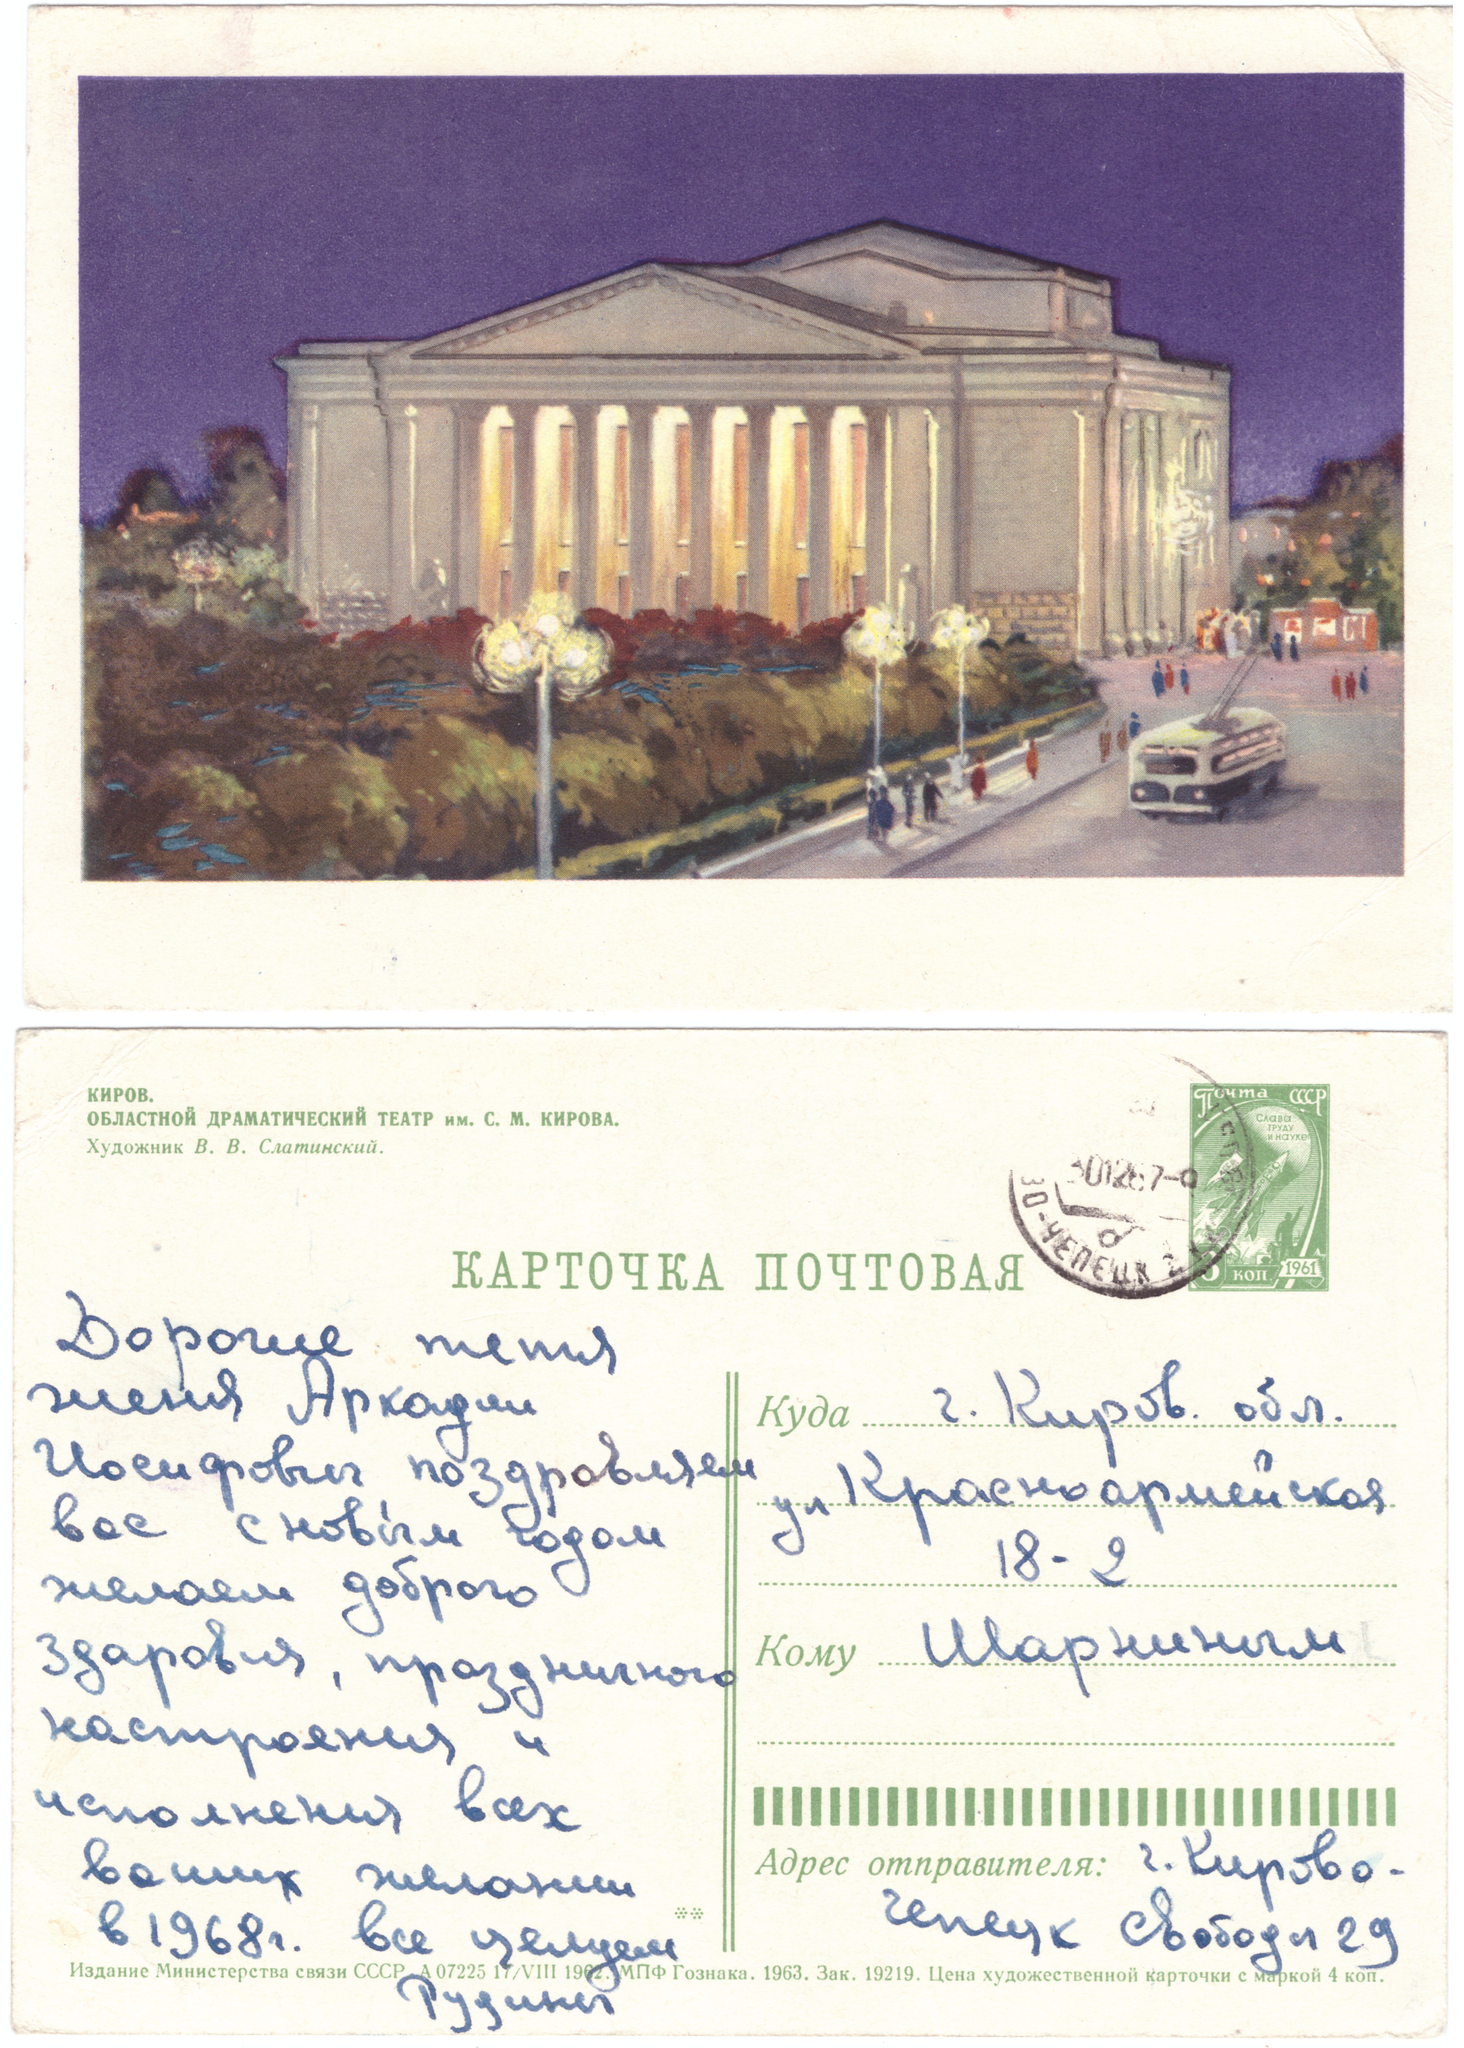 КИРОВ.
ОБЛАСТНОЙ ДРАМАТИЧЕСКИЙ ТЕАТР им. С. М. КИРОВА.
Художник В. В. Слатинский.
Почта СССР
Слава
труду
и науке
КОП 1961
-ЧЕПЕЦК
КАРТОЧКА ПОЧТОВАЯ
Дорогие тетя
женя Аркадии
Иосифовы поздравляем
вас с новым годом
желаем доброго
здаровия, праздничного
настроения и
исполнения всех
ваших желании
в 1968г. все целуем
Рудины
Куда г. Киров. обл.
ул Красноармейская
18-2
Кому Шарниным
Адрес отправителя: г. Кирово-
чепецк Свободы 29
Издание Министерства связи СССР. А 07225 17/VIII 1962. МПФ Гознака. 1963. Зак. 19219. Цена художественной карточки с маркой 4 коп.